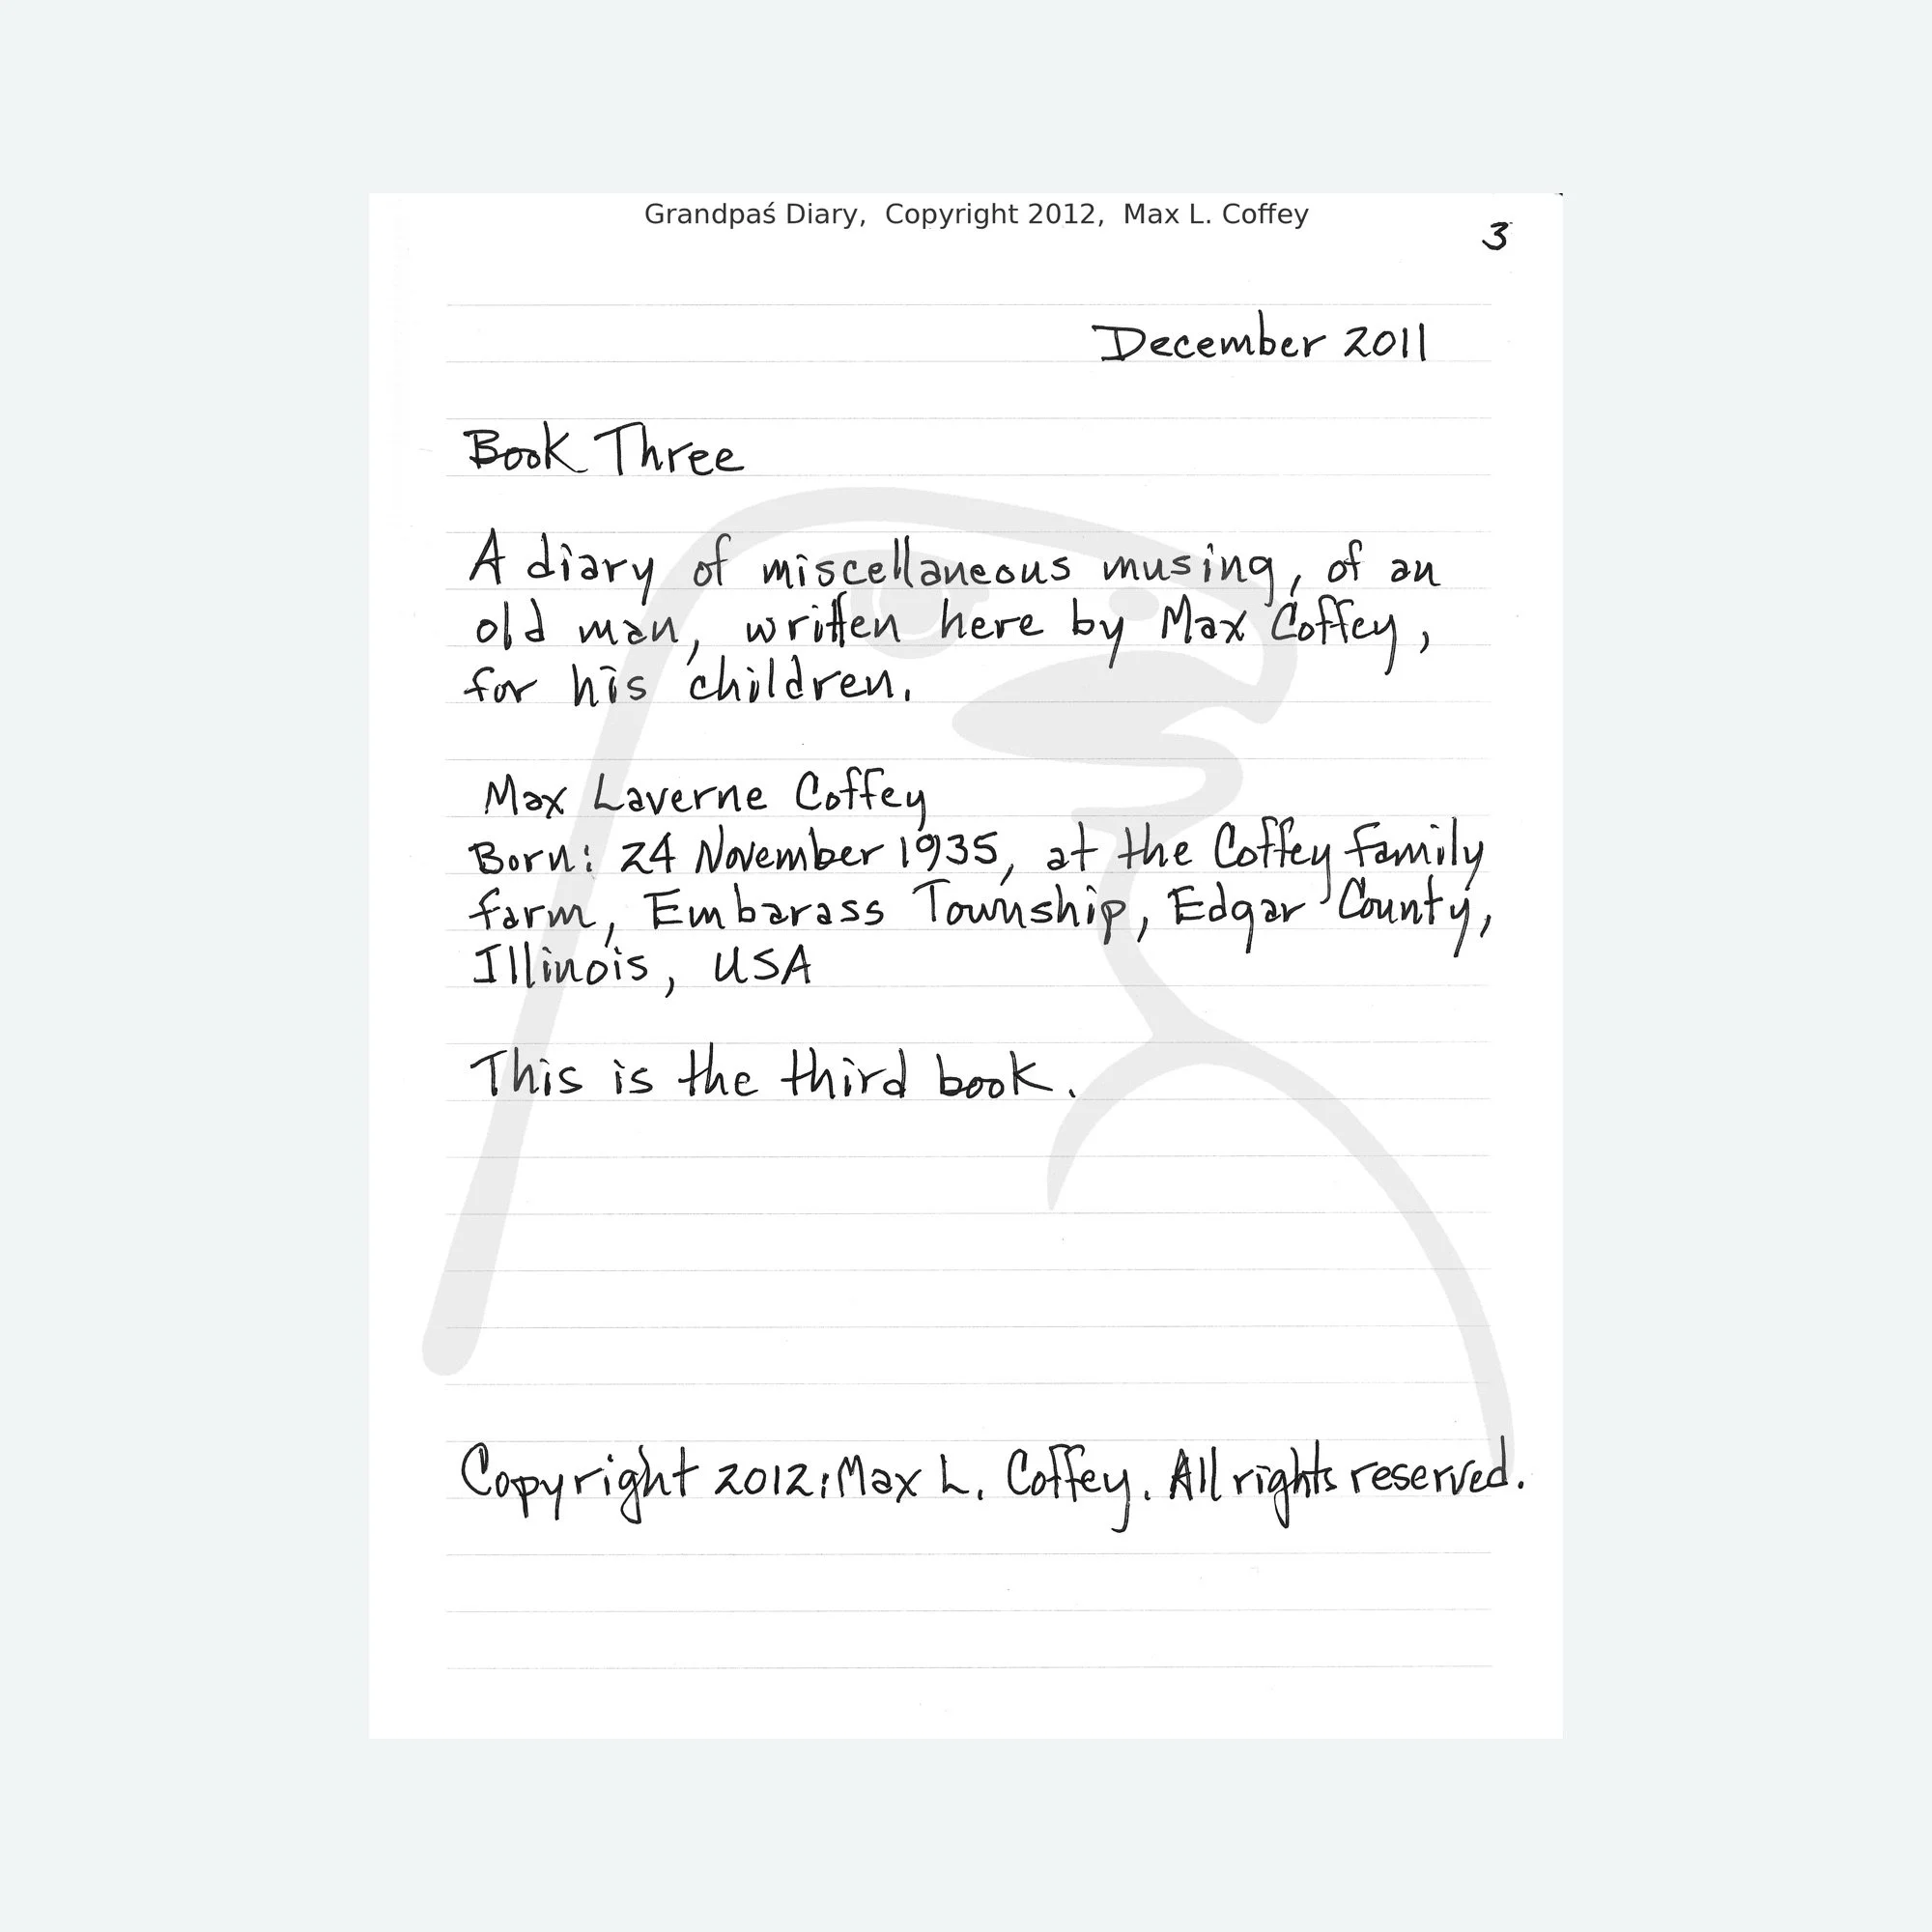 Grandpaś Diary, Copyright 2012, Max L. Coffey
3
December 2011
Book Three
A diary of miscellaneous musing, of an
old man, written here by Max Coffey,
for his children.
Max Laverne Coffey
Born: 24 November 1935, at the Coffey family
farm, Embarass Township, Edgar County,
Illinois, USA
This is the third book.
Copyright 2012: Max L. Coffey. All rights reserved.